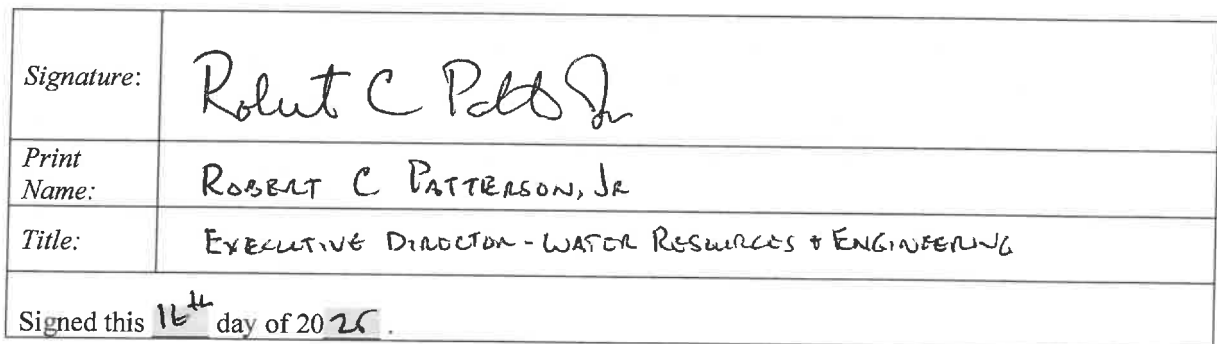 Signature: Robert C Patt Jr
Print
Name: ROBERT C PATTERSON, JR
Title: EXECUTIVE DIRECTOR - WATER RESOURCES + ENGINEERING
Signed this 16th day of 2025 .